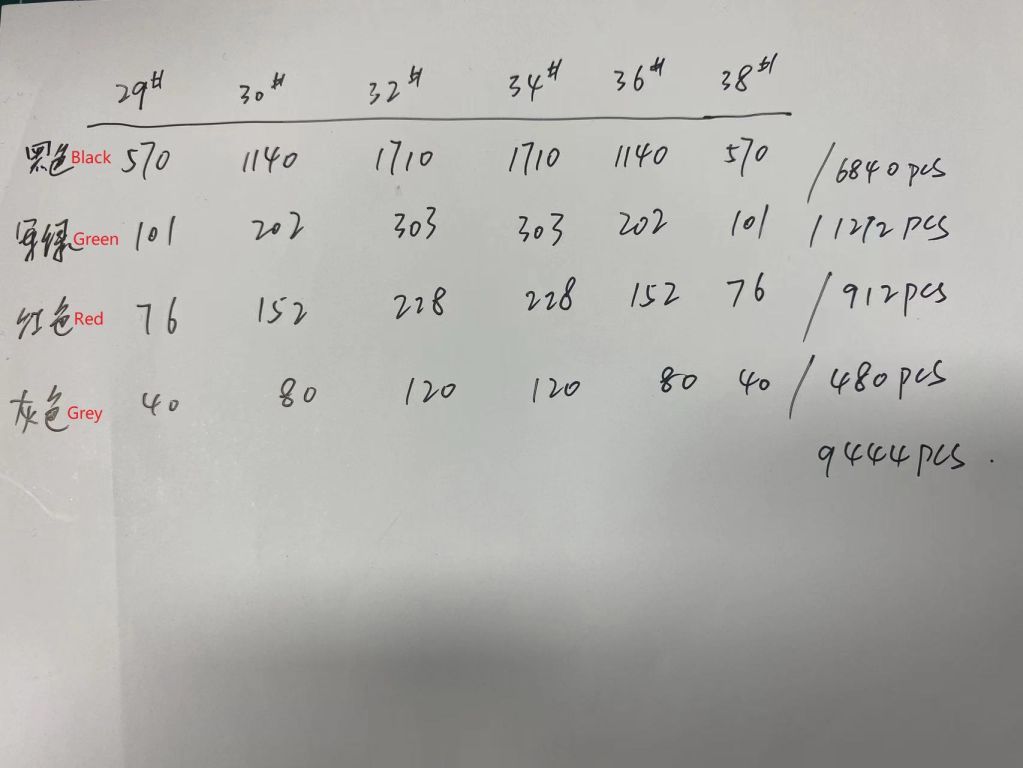 29# 30# 32# 34# 36# 38#
黑色 Black 570 1140 1710 1710 1140 570 /6840pcs
军绿 Green 101 202 303 303 202 101 /1212pcs
红色 Red 76 152 228 228 152 76 /912pcs
灰色 Grey 40 80 120 120 80 40 /480pcs
9444pcs.